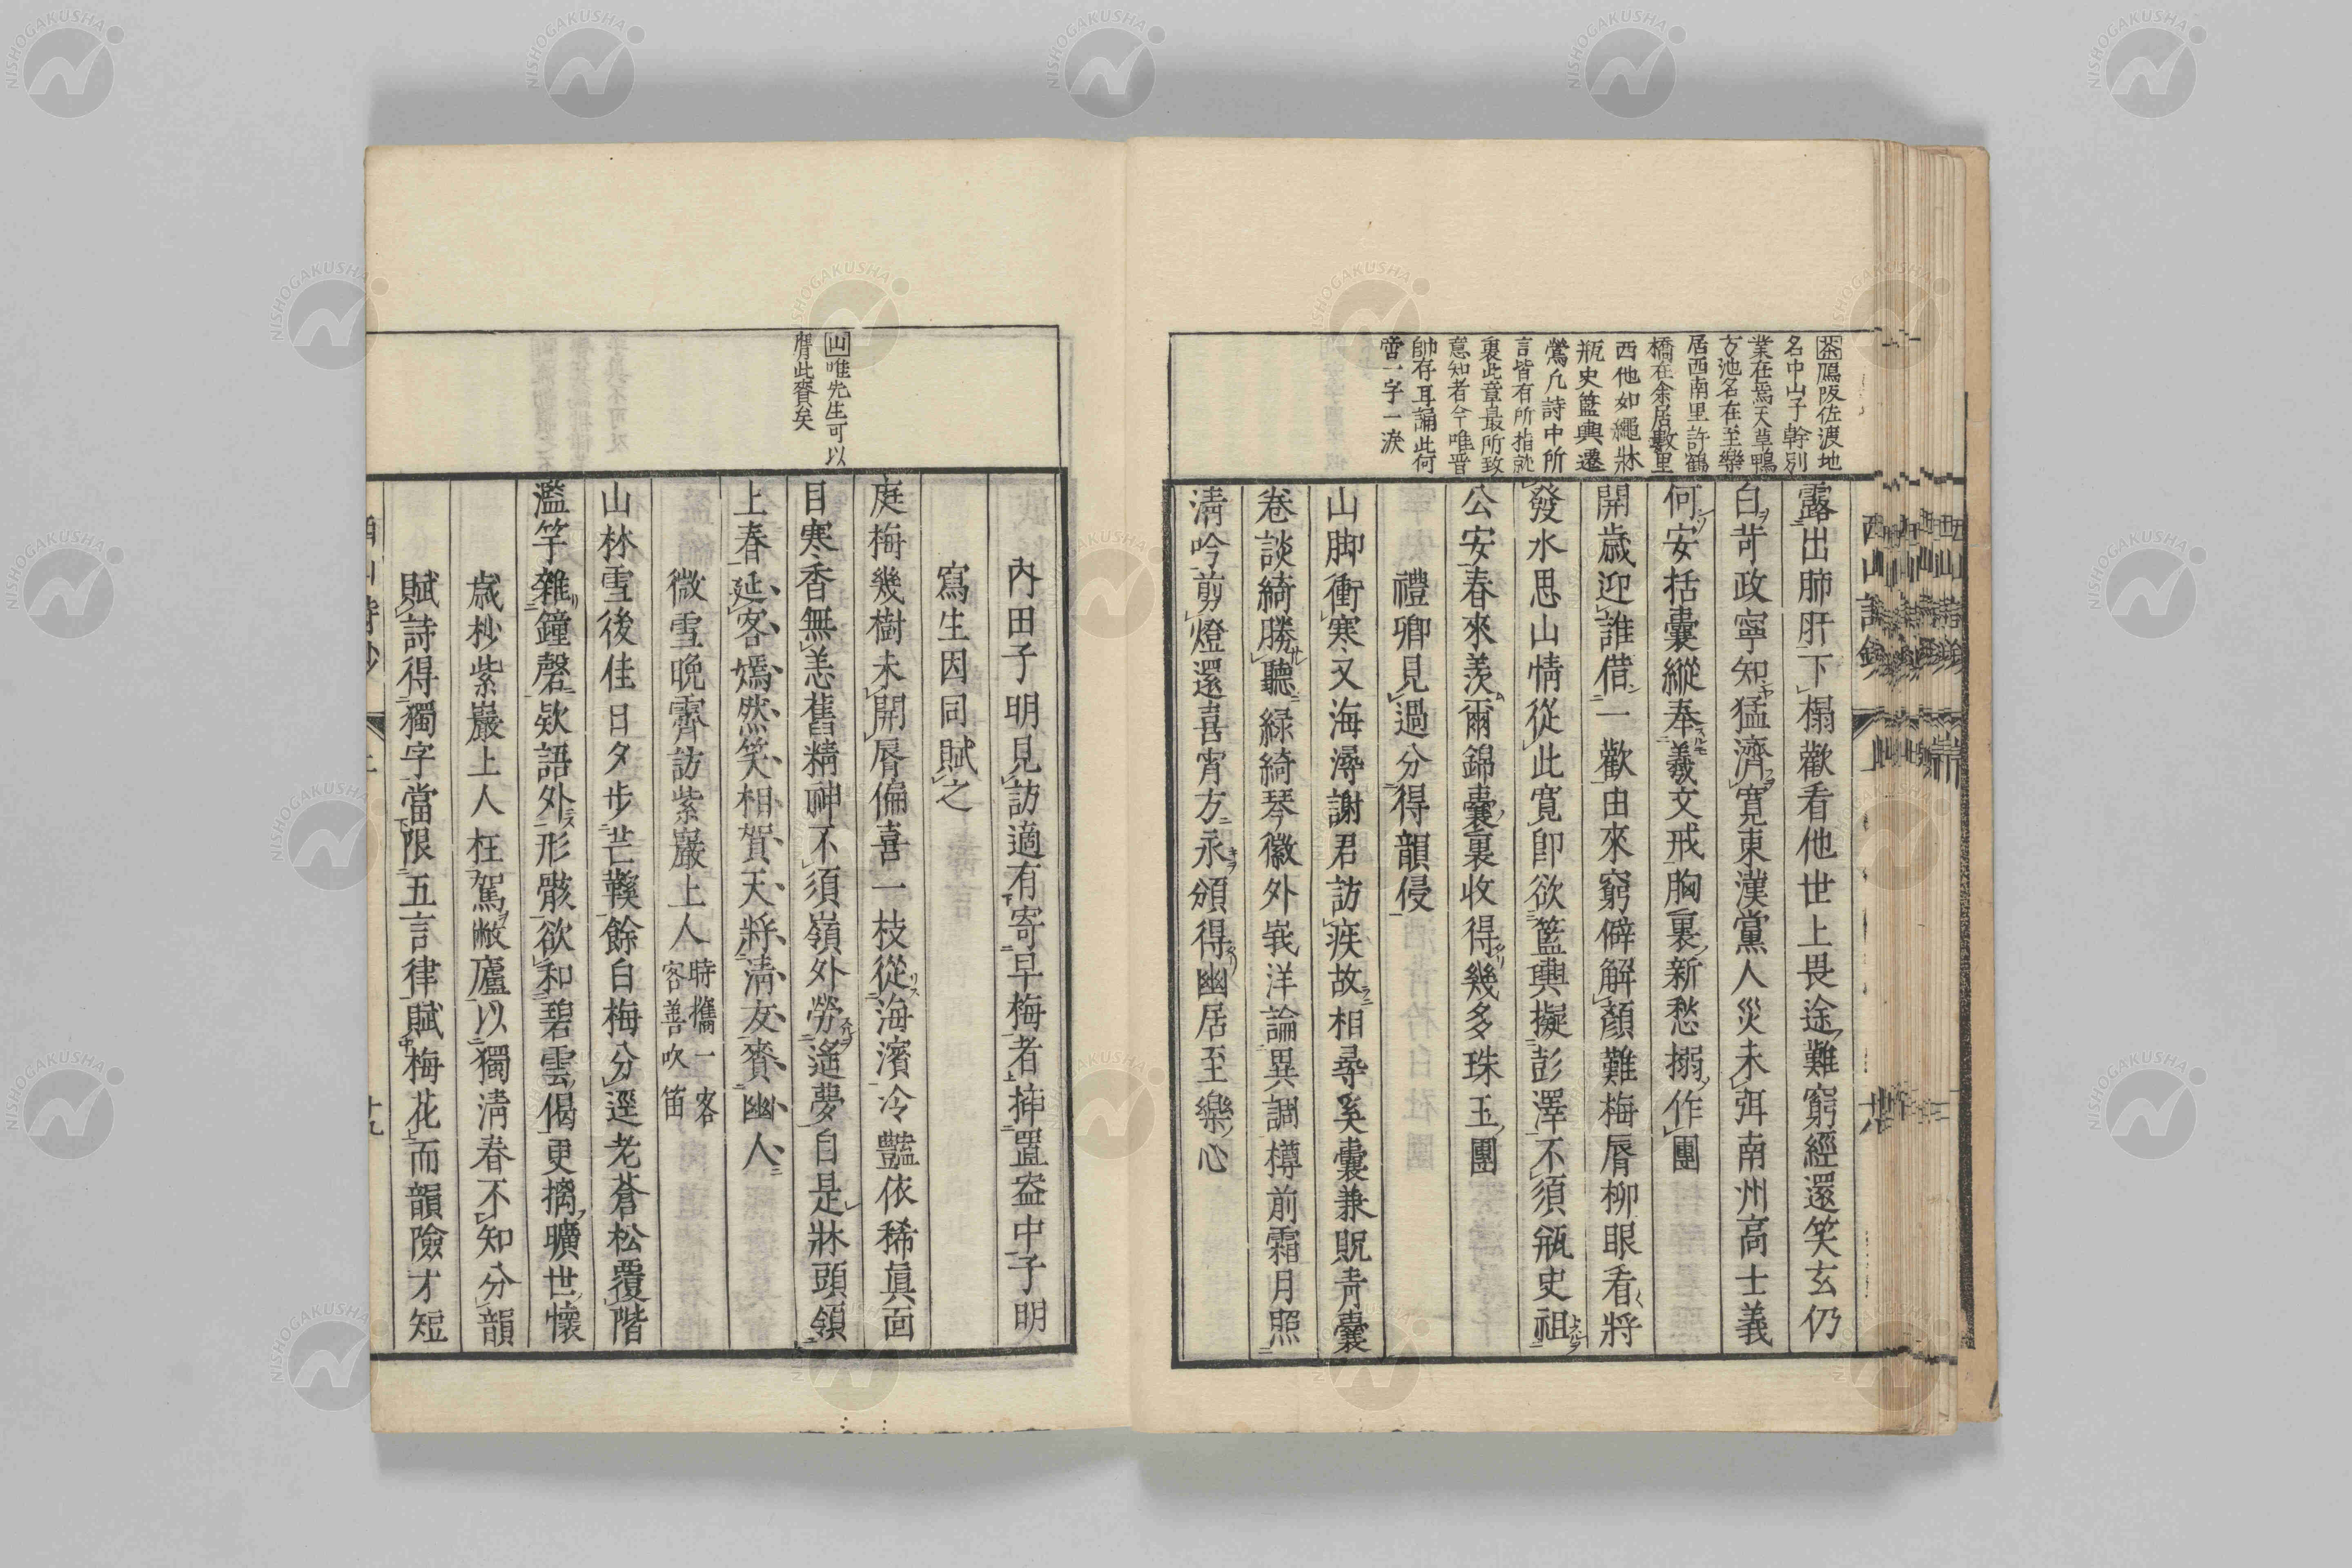 茶鴈阪佐渡地
名中山子幹別
業在焉天草鴨
方池名在至樂
居西南里許鶴
橋在余居數里
西他如繩牀
瓶史籃輿遷
鶯几詩中所
言皆有所指就
裏此章最所致
意知者今唯晋
帥存耳誦此何
啻一字一淚
露出肺肝下榻歡看他世上畏途難窮經還笑玄仍
白苛政寧知猛濟寬東漢黨人災未弭南州高士義
何安括囊縱奉羲文戒胸裏新愁搦作團
開歲迎誰借一歡由來窮僻解顏難梅脣柳眼看將
發水思山情從此寬卽欲籃輿擬彭澤不須瓶史祖
公安春來羨爾錦囊裏收得幾多珠玉團
禮卿見過分得韻侵
山脚衝寒又海潯謝君訪疾故相尋奚囊兼貺靑囊
卷談綺勝聽綠綺琴徽外峩洋論異調樽前霜月照
淸吟剪燈還喜宵方永頒得幽居至樂心
山唯先生可以
膺此賚矣
內田子明見訪適有寄早梅者揷置盎中子明
寫生因同賦之
庭梅幾樹未開脣偏喜一枝從海濱冷豔依稀眞面
目寒香無恙舊精神不須嶺外勞遙夢自是牀頭領
上春延客嫣然笑相賀天將淸友賚幽人
微雪晚霽訪紫巖上人
時攜一客
客善吹笛
山林雪後佳日夕步芒鞵餘白梅分逕老蒼松覆階
濫竽雜鐘磬欵語外形骸欲和碧雲偈更摛曠世懷
歲杪紫巖上人枉駕敝廬以獨淸春不知分韻
賦詩得獨字當限五言律賦梅花而韻險才短